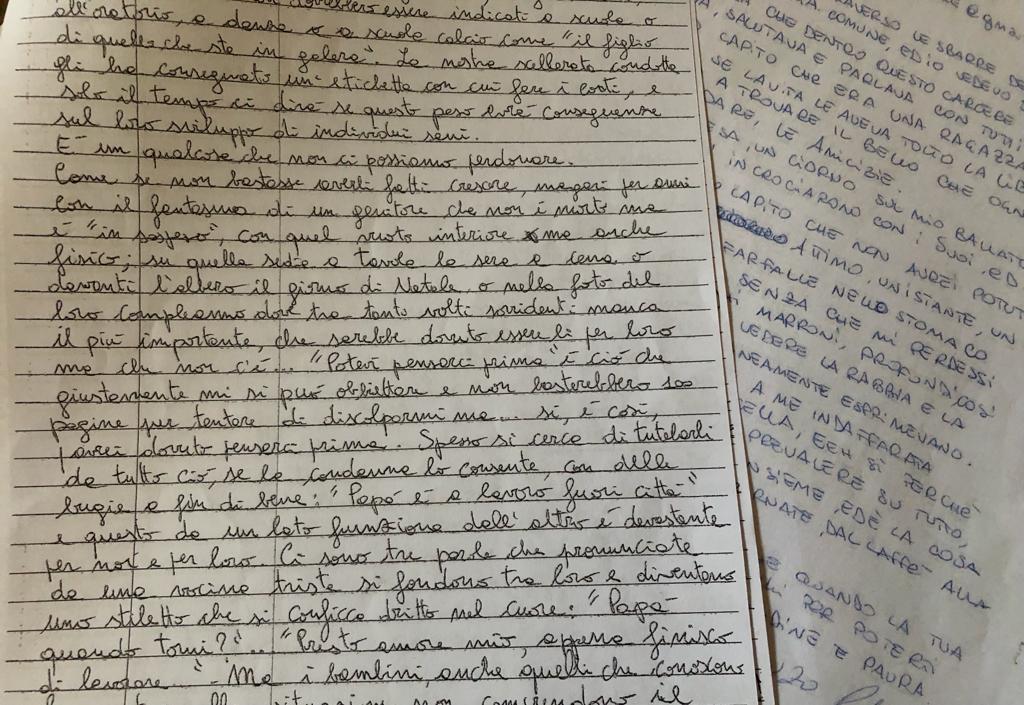 dovrebbero essere indicati a scuola o
all'oratorio, a danza o a scuola calcio come "il figlio
di quello che sta in galera". La nostra scellerata condotta
gli ha consegnato un'etichetta con cui fare i conti, e
solo il tempo ci dirà se questo peso avrà conseguenze
sul loro sviluppo di individui seri.
E' un qualcosa che non ci possiamo perdonare.
Come se non bastasse averli fatti crescere, magari per anni
con il fantasma di un genitore che non è morto ma
è "in sospeso", con quel vuoto interiore ma anche
fisico; su quella sedia a tavola la sera a cena, o
davanti l'albero il giorno di Natale, o nella foto del
loro compleanno dove tra tanti volti sorridenti manca
il più importante, che sarebbe dovuto essere lì per loro
ma che non c'è... "Potevi pensarci prima" è ciò che
giustamente mi si può obbiettare e non basterebbero 100
pagine per tentare di discolparmi ma... si, è così,
avrei dovuto pensarci prima. Spesso si cerca di tutelarli
da tutto ciò, se la condanna lo consente, con delle
bugie a fin di bene: "Papà è a lavoro fuori città"
e questo da un lato funziona dall'altro è devastante
per noi e per loro. Ci sono tre parole che pronunciate
da una vocina triste si fondono tra loro e diventano
uno stiletto che si conficca dritto nel cuore: "Papà
quando torni?"... "Presto amore mio, appena finisco
di lavorare" - Ma i bambini, anche quelli che conoscono
non comprendono il
LE SBARRE DE
COMUNE, ED IO VEDEVO
CHE DENTRO QUESTO CARCERE
SALUTAVA E PARLAVA CON TUTTI
CAPITO CHE ERA UNA RAGAZZA
SE LA VITA LE AVEVA TOLTO LA LIB
A TROVARE IL BELLO CHE OGN
DARE, LE AMICIZIE.
UN GIORNO SUL MIO BALLATO
INCROCIARONO CON I SUOI ED
CAPITO CHE NON AVREI POTUT
ATTIMO, UN ISTANTE, UN
FARFALLE NELLO STOMACO
SENZA CHE MI PERDESSI
MARRONI, PROFONDI, COSÌ
VEDERE LA RABBIA E LA
NEAMENTE ESPRIMEVANO.
A ME INDAFFARATA
ELLA, EEH SÌ PERCHÉ
PREVALERE SU TUTTO,
NSIEME, ED È LA COSA
RNATE, DAL CAFFÈ ALLA
E QUANDO LA TUA
PER POTERTI
DINE E PAURA